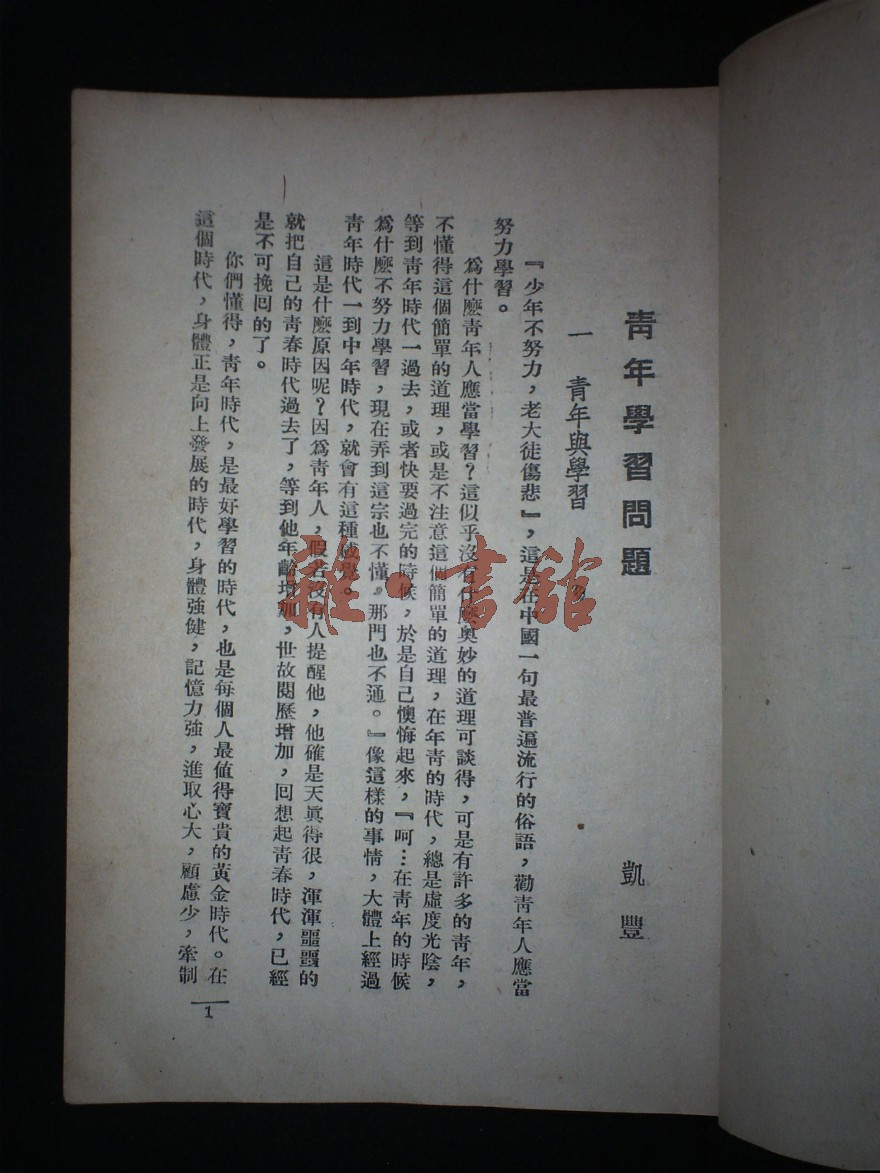 青年學習問題
凱豐
一 青年與學習
『少年不努力，老大徒傷悲』，這是在中國一句最普遍流行的俗語，勸青年人應當
努力學習。
爲什麽青年人應當學習？這似乎沒有什麽奧妙的道理可談得，可是有許多的青年，
不懂得這個簡單的道理，或是不注意這個簡單的道理，在年青的時代，總是虛度光陰，
等到青年時代一過去，或者快要過完的時候，於是自己懊悔起來，『呵…在青年的時候
爲什麽不努力學習，現在弄到這宗也不懂，那門也不通。』像這樣的事情，大體上經過
青年時代一到中年時代，就會有這種感覺。
這是什麽原因呢？因爲青年人，假若沒有人提醒他，他確是天眞得很，渾渾噩噩的
就把自己的青春時代過去了，等到他年齡增加，世故閱歷增加，回想起青春時代，已經
是不可挽回的了。
你們懂得，青年時代，是最好學習的時代，也是每個人最值得寶貴的黃金時代。在
這個時代，身體正是向上發展的時代，身體強健，記憶力強，進取心大，顧慮少，牽制
1
雜·書舘